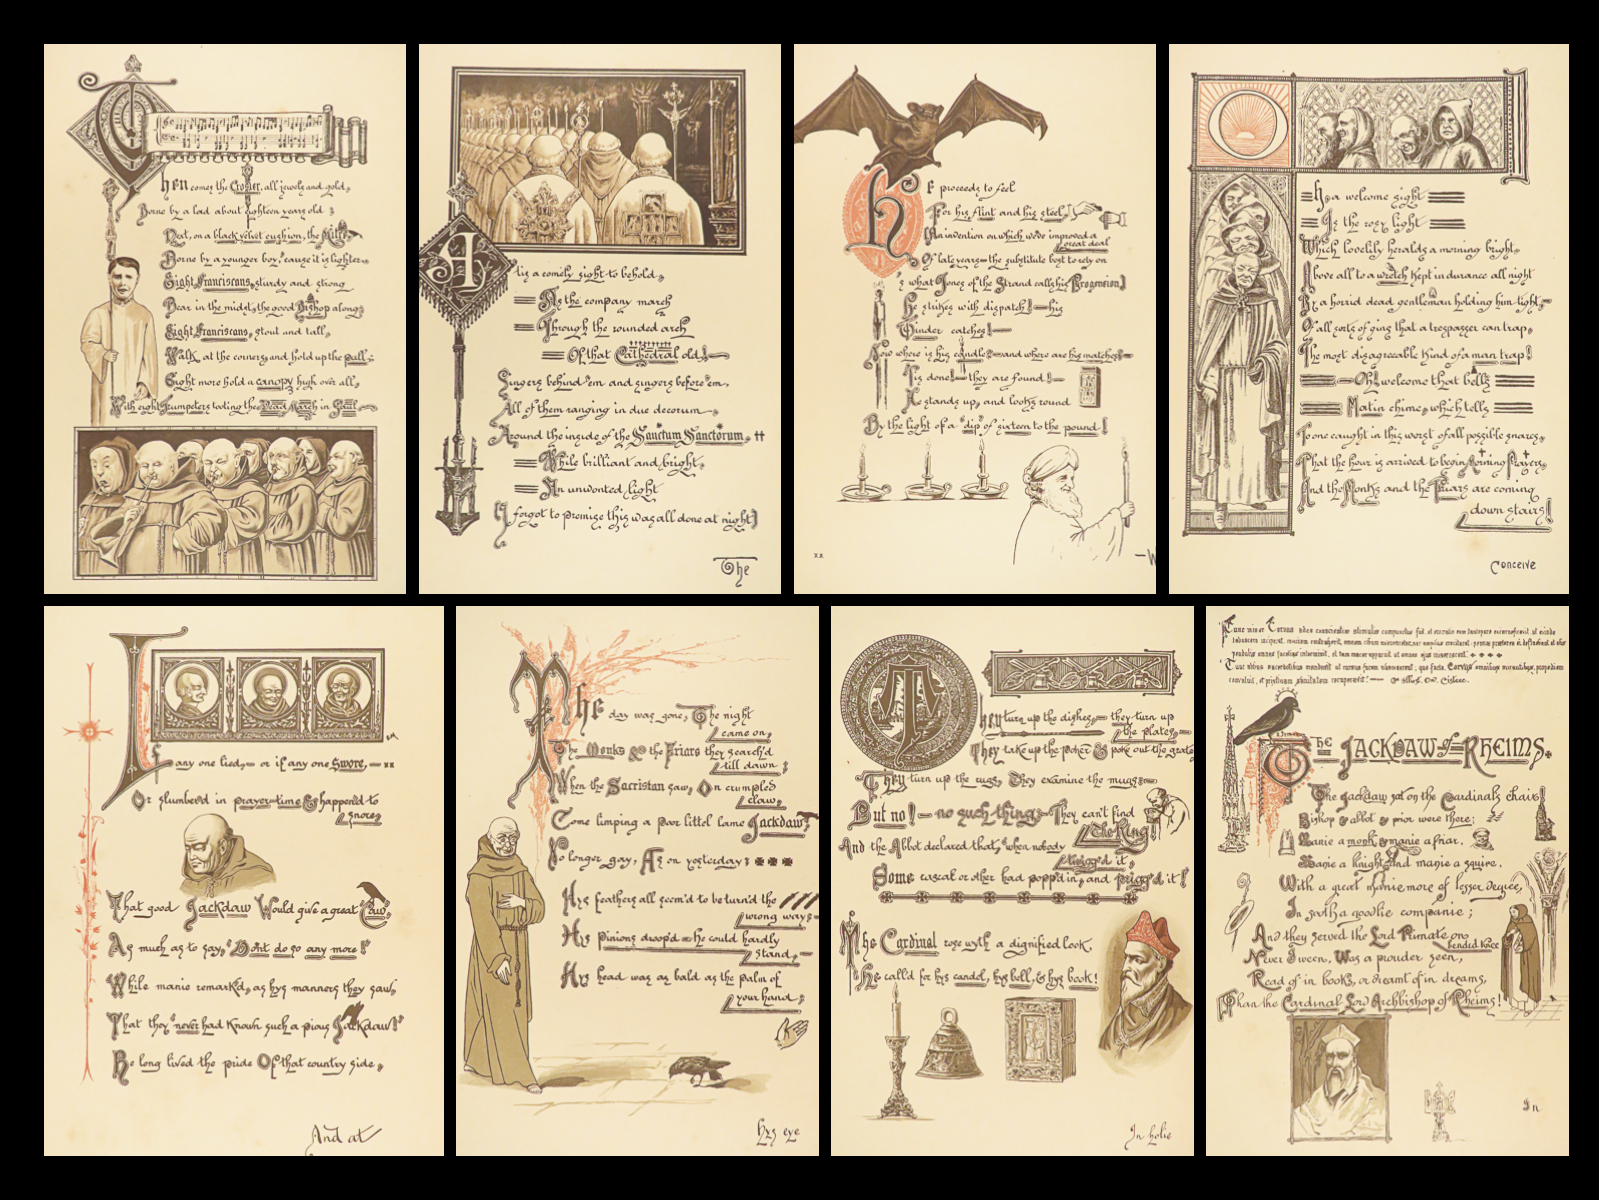 Then comes the Crosier, all jewels and gold,
Borne by a lad about eighteen years old;
Next, on a black velvet cushion, the Mitre,
Borne by a younger boy, 'cause it is lighter.
Eight Franciscans, sturdy and strong
Bear in the midst, the good Bishop along;
Eight Franciscans, stout and tall,
Walk at the corners, and hold up the pall;
Eight more hold a canopy high over all,
With eight Trumpeters tooting the Dead March in Saul.
A
'tis a comely sight to behold,
As the company march
Through the rounded arch
Of that Cathedral old!
Singers behind 'em and singers before 'em,
All of them ranging in due decorum,
Around the inside of the Sanctum Sanctorum,
While brilliant and bright,
An unwonted light
(I forgot to premise this was all done at night)
The
He proceeds to feel
For his flint and his steel,
(An invention on which we've improved a
great deal
Of late years—the substitute best to rely on
's what Jones of the Strand calls his Promethean)
He strikes with dispatch!—his
Tinder catches!—
Now where is his candle?—and where are his matches?—
'Tis done!—they are found!—
He stands up, and looks round
By the light of a "dip" of sixteen to the pound!
xx
—W
Is a welcome sight
Is the rosy light
Which lovelily heralds a morning bright,
Above all to a wretch kept in durance all night
By a horrid dead gentleman holding him tight,—
Of all sorts of gins that a trespasser can trap,
The most disagreeable kind of a man trap!
—Oh! welcome that bell's
Matin chime, which tells
To one caught in this worst of all possible snares,
That the hour is arrived to begin Morning Prayers,
And the Monks and the Friars are coming
down stairs!
Conceive
If any one lied,— or if any one swore,—
Or slumber'd in prayer-time & happen'd to
snore,
That good Jackdaw Would give a great Caw,
As much as to say, "Don't do so any more!"
While manie remark'd, as hys manners they saw,
That they "never had known such a pious Jackdaw!"
He long lived the pride Of that country side,
And at
The day was gone, The night
came on,
The Monks & the Friars they search'd
till dawn;
When the Sacristan saw, On crumpled
claw,
Come limping a poor littel lame Jackdaw,
No longer gay, As on yesterday;
Hys feathers all seem'd to be turn'd the
wrong way;
Hys pinions droop'd—he could hardly
stand,—
Hys head was as bald as the palm of
your hand;
Hys eye
They turn up the dishes,—they turn up
the plates,—
They take up the poker & poke out the grates
They turn up the rugs, They examine the mugs;—
But no!—no such thing;—They can't find
The Ring!
And the Abbot declared that, "when nobody
twigg'd it,
Some rascal or other had popp'd in, and prigg'd it!"
The Cardinal rose wyth a dignified look,
He call'd for hys candel, hys bell, & hys book!
In holie
The JACKDAW of RHEIMS.
The Jackdaw sat on the Cardinal's chair!
Bishop & abbot & prior were there;
Manie a monk, & manie a friar,
Manie a knight, and manie a squire,
With a great manie more of lesser degree,
In sooth a goodlie companie;
And they served the Lord Primate on
bended knee
Never, I ween, Was a prouder seen,
Read of in books, or dreamt of in dreams,
Than the Cardinal Lord Archbishop of Rheims!
In